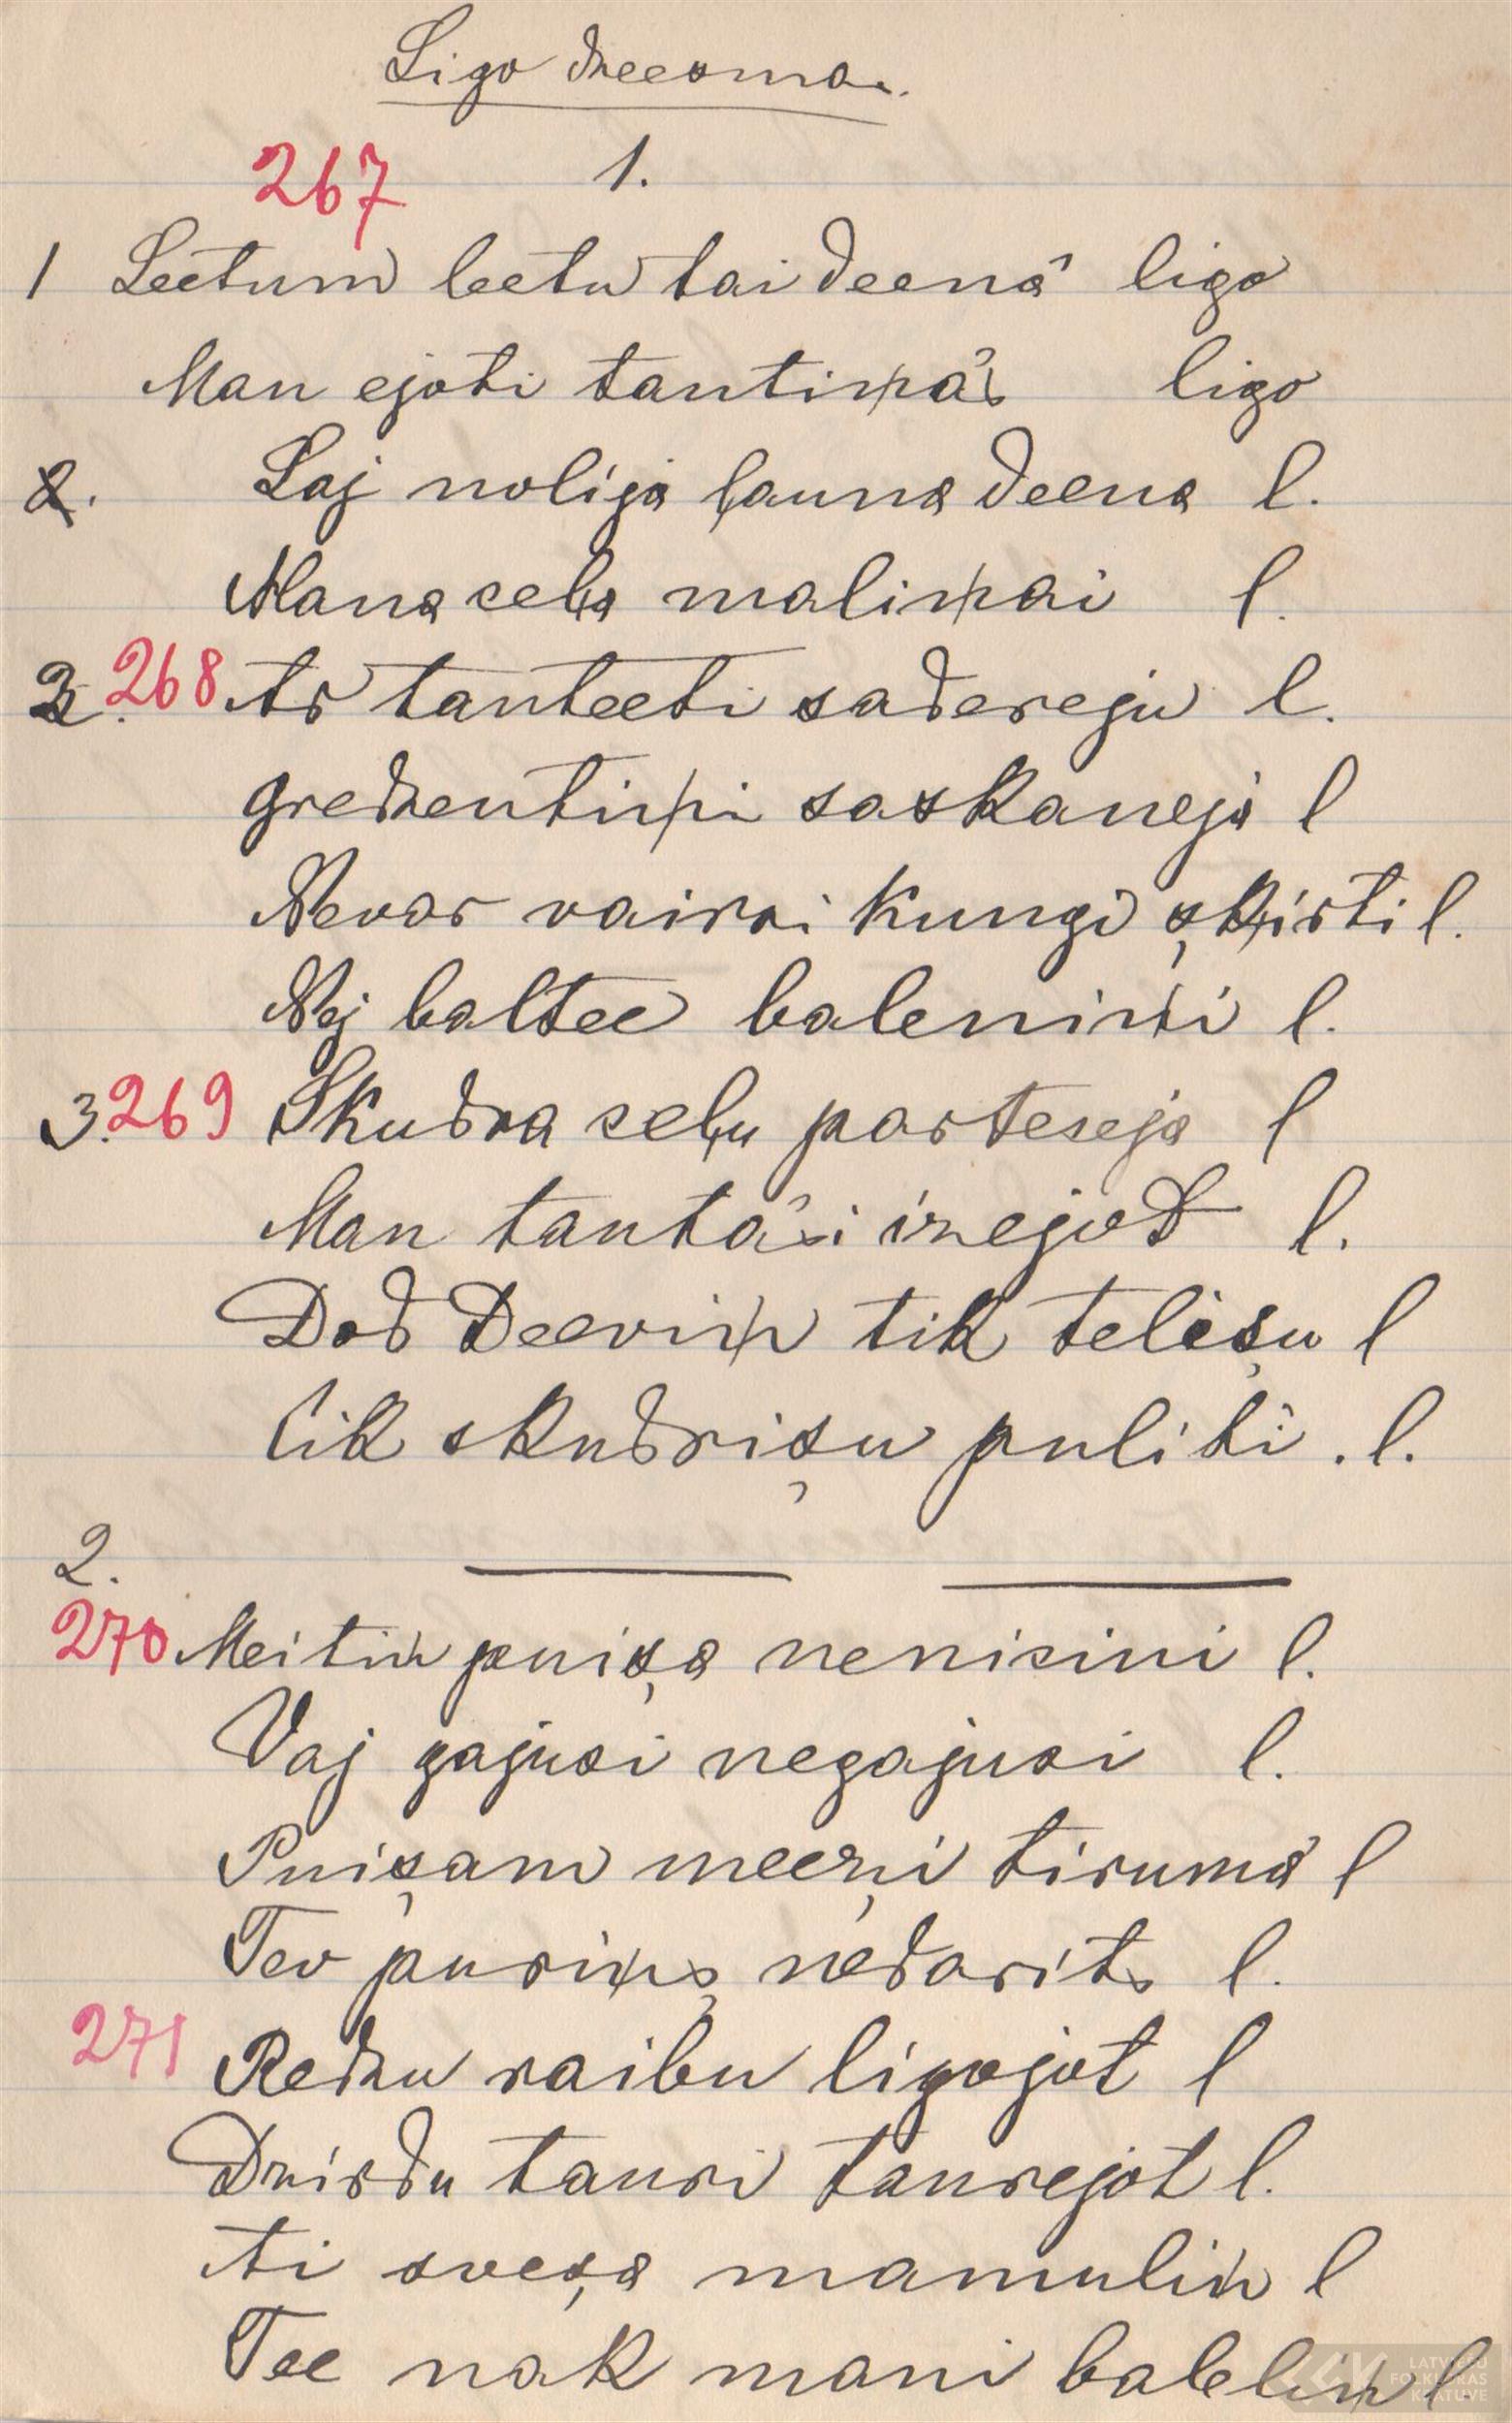 Ligo dzeesma.
267 1.
1 Leetum leetu tai deenâ ligo
Man ejoti tautiņâs ligo
2. Laj nolija ļauna deena l.
Mana ceļa maliņai l.
3. 268 Ar tauteeti sadereju l.
gredzentiņi saskaneja l
Nevar vairsi kungi şķirti l.
Nej baltee baleniņi l.
3. 269 Skudra ceļu parteseja l
Man tautâsi izejot l.
Dod Deeviņ tik telişu l
Cik skudrişu puliti. l.
2.
270 Meitiņ puişa nenicini l.
Vaj gajusi negajusi l.
Puişam meeẓi tirumâ l
Tev puriņş nedarits l.
271 Redzu raibu ligojot l
Dzirdu tauri taurejot l.
Ai sveşa mamuliņ l
Tee nak mani baleliņ l.
LATVIEŠU
FOLKLORAS
KRĀTUVE